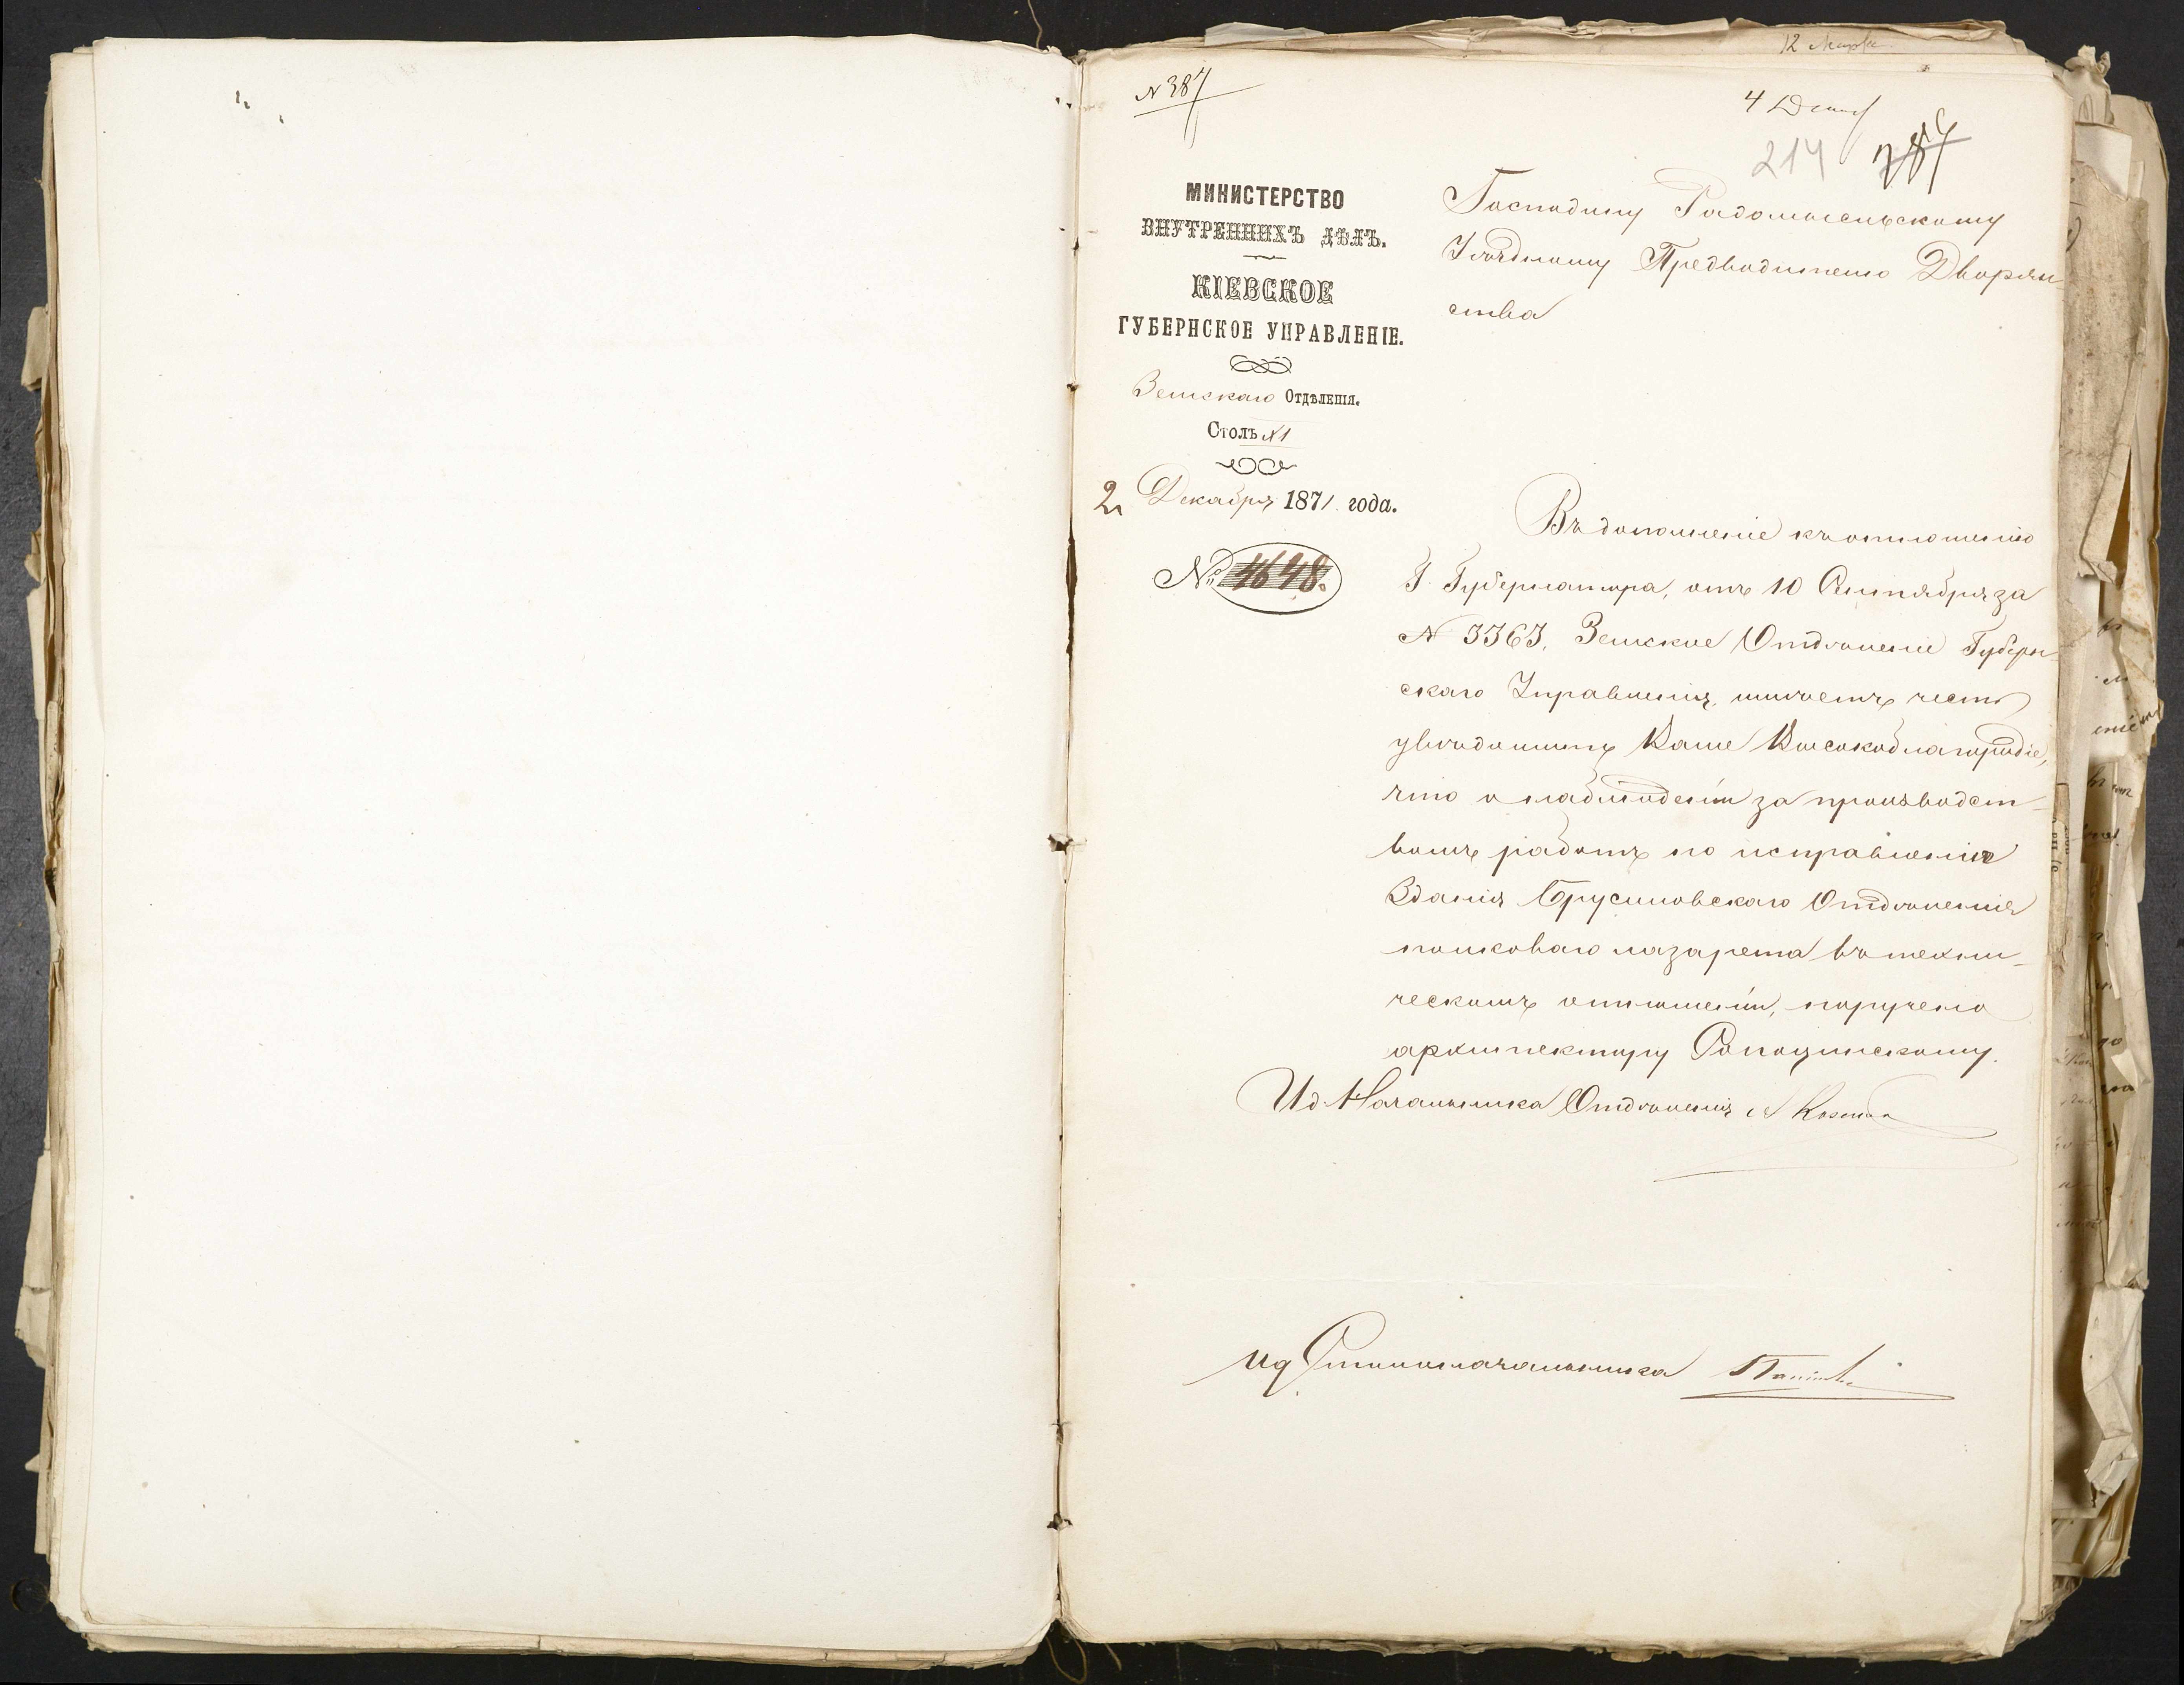 12 Марта
N 387
4 Декаб
214 387
МИНИСТЕРСТВО
ВНУТРЕННИХЪ ДѢЛЪ.
КІЕВСКОЕ
ГУБЕРНСКОЕ УПРАВЛЕНІЕ.
Земскаго Отдѣленія.
Столъ N 1
2 Декабря 1871 года.
№ 4648.
Господину Радомысльскому
Уѣздному Предводителю Дворян
ства
Въ дополненіе къ отношенію
Г. Губернатора, отъ 10 Сентября за
N 3363, Земское Отдѣленіе Губерн-
скаго Управленія, имѣетъ честь
увѣдомить Ваше Высокоблагородіе,
что о наблюденіи за производст-
вомъ работъ по исправленію
Зданія Брусиловскаго Отдѣленія
полковаго лазарета въ техни-
ческомъ отношеніи, поручено
архитектору
Ид. Начальника Отдѣленія
ид Столоначальника